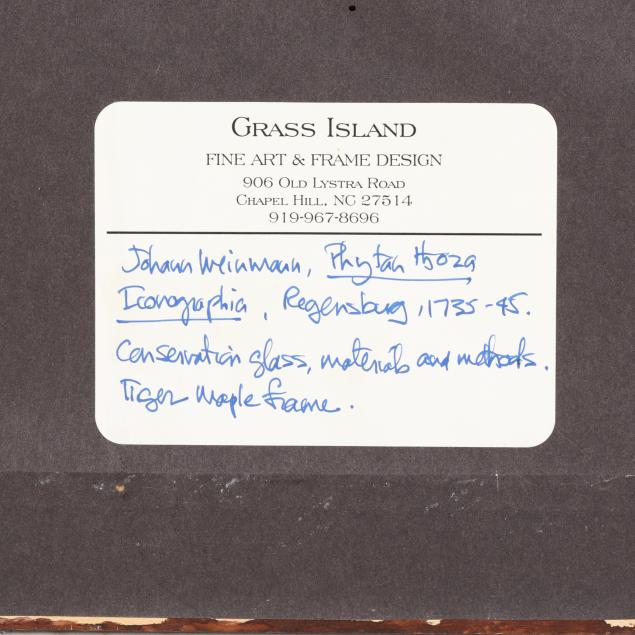 GRASS ISLAND
FINE ART & FRAME DESIGN
906 OLD LYSTRA ROAD
CHAPEL HILL, NC 27514
919-967-8696
Johann Weinmann, Phytan Hjoza
Iconographia, Regensburg, 1735-45.
Conservation glass, materials and methods.
Tiger Maple frame.